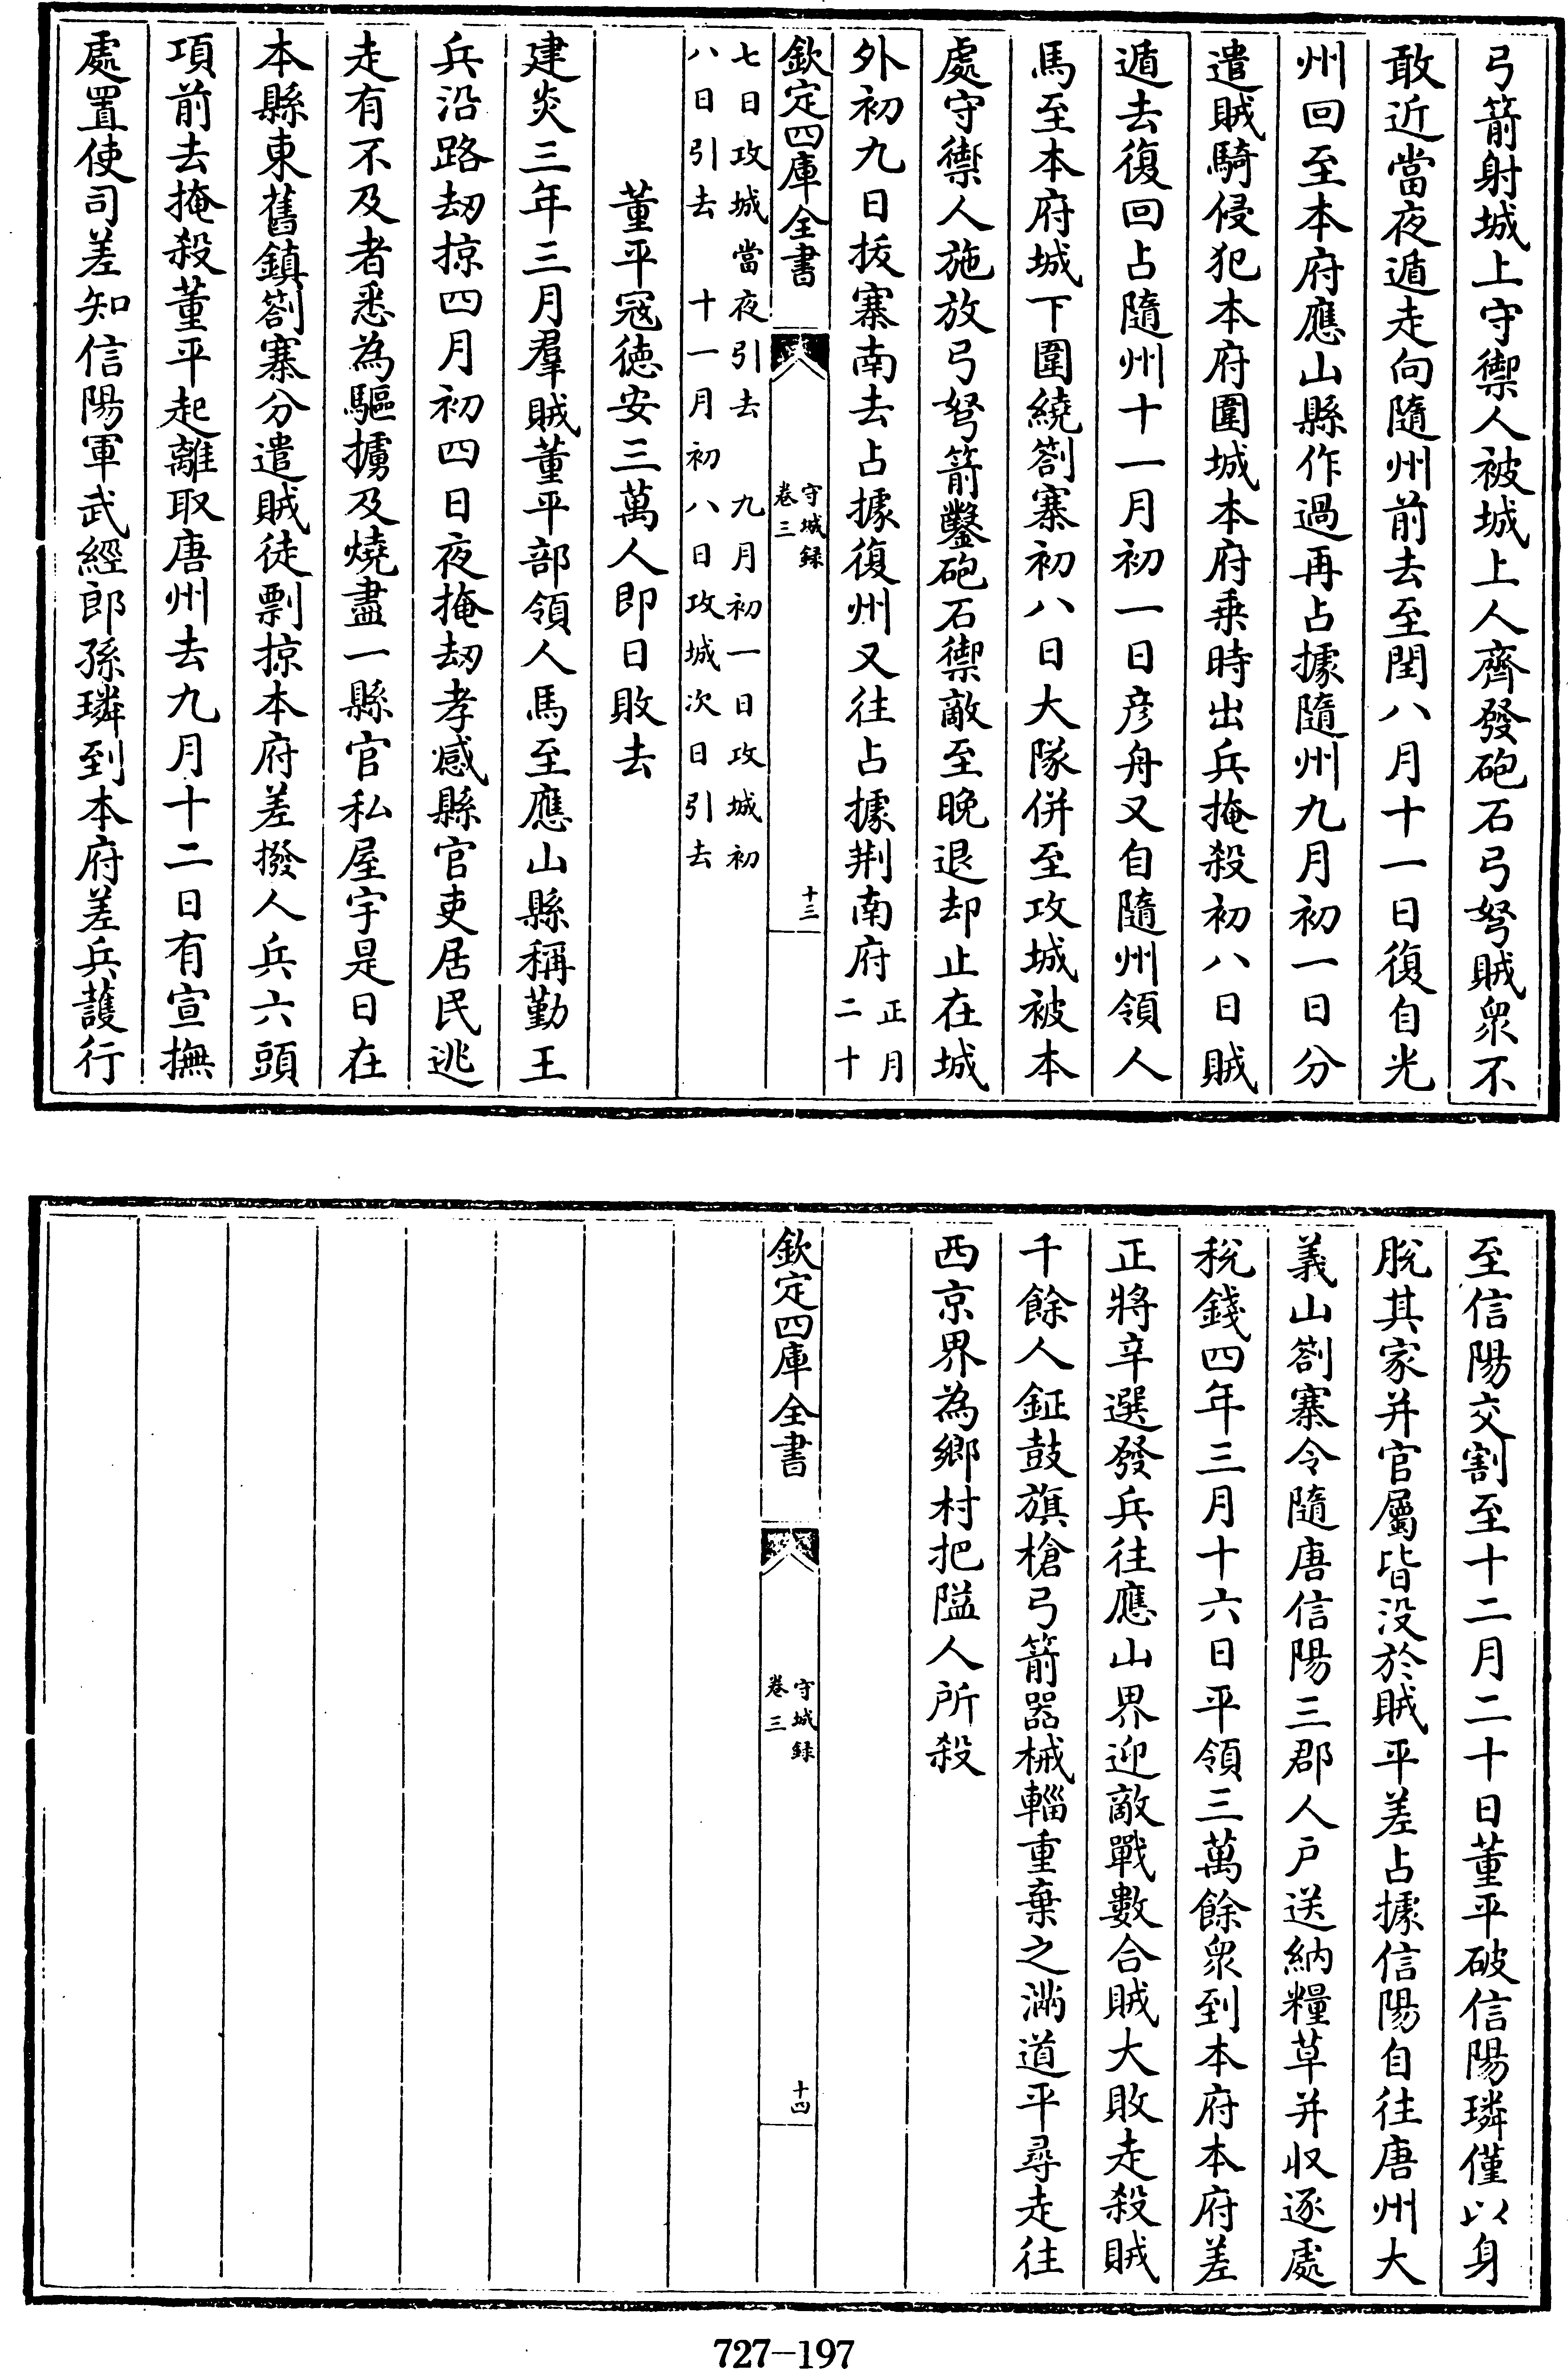 弓箭射城上守禦人被城上人齊發砲石弓弩賊衆不
敢近當夜遁走向隨州前去至閏八月十一日復自光
州回至本府應山縣作過再占據隨州九月初一日分
遣賊騎侵犯本府圍城本府乗時出兵掩殺初八日賊
遁去復回占隨州十一月初一日彦舟又自隨州領人
馬至本府城下圍繞劄寨初八日大隊併至攻城被本
處守禦人施放弓弩箭鑿砲石禦敵至晚退却止在城
外初九日拔寨南去占據復州又往占據荆南府正月
二十
欽定四庫全書
守城録
卷三
十三
七日攻城當夜引去 九月初一日攻城初
八日引去 十一月初八日攻城次日引去
董平寇徳安三萬人即日敗去
建炎三年三月羣賊董平部領人馬至應山縣稱勤王
兵沿路刼掠四月初四日夜掩刼孝感縣官吏居民逃
走有不及者悉為驅擄及燒盡一縣官私屋宇是日在
本縣東舊鎮劄寨分遣賊徒剽掠本府差撥人兵六頭
項前去掩殺董平起離取唐州去九月十二日有宣撫
處置使司差知信陽軍武經郎孫璘到本府差兵護行
至信陽交割至十二月二十日董平破信陽璘僅以身
脱其家并官屬皆没於賊平差占據信陽自往唐州大
義山劄寨令隨唐信陽三郡人户送納糧草并収逐處
税錢四年三月十六日平領三萬餘衆到本府本府差
正將辛選發兵往應山界迎敵戰數合賊大敗走殺賊
千餘人鉦鼓旗槍弓箭器械輜重棄之滿道平尋走往
西京界為鄉村把隘人所殺
欽定四庫全書
守城録
卷三
十四
727—197